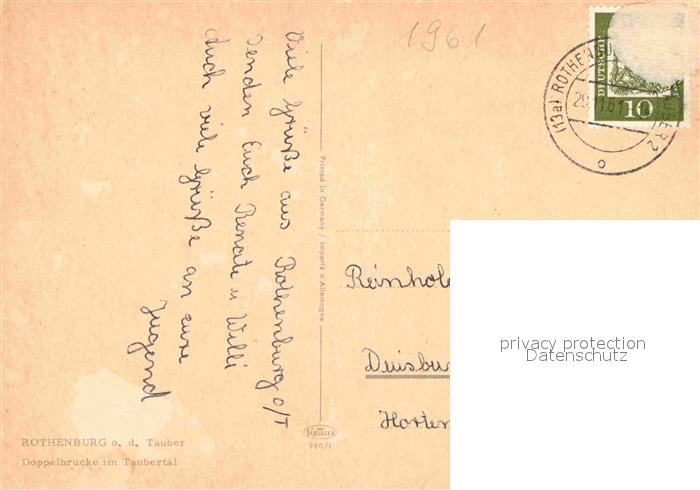 1961
Viele Grüße aus Rothenburg o/T
senden Euch Renate u Willi
Auch viele Grüße an eure
Jugend
Printed in Germany / Importé d'Allemagne
DEUTSCHE
10
(13a) ROTHENBURG
2
Reinhold
Duisbur
Horten
privacy protection
Datenschutz
KRÜGER
980/1
ROTHENBURG o. d. Tauber
Doppelbrücke im Taubertal